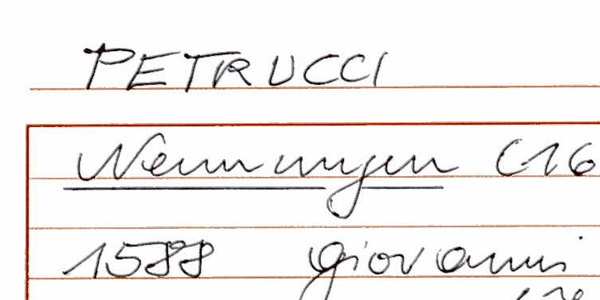 PETRUCCI
Nennungen (16
1588 Giovanni